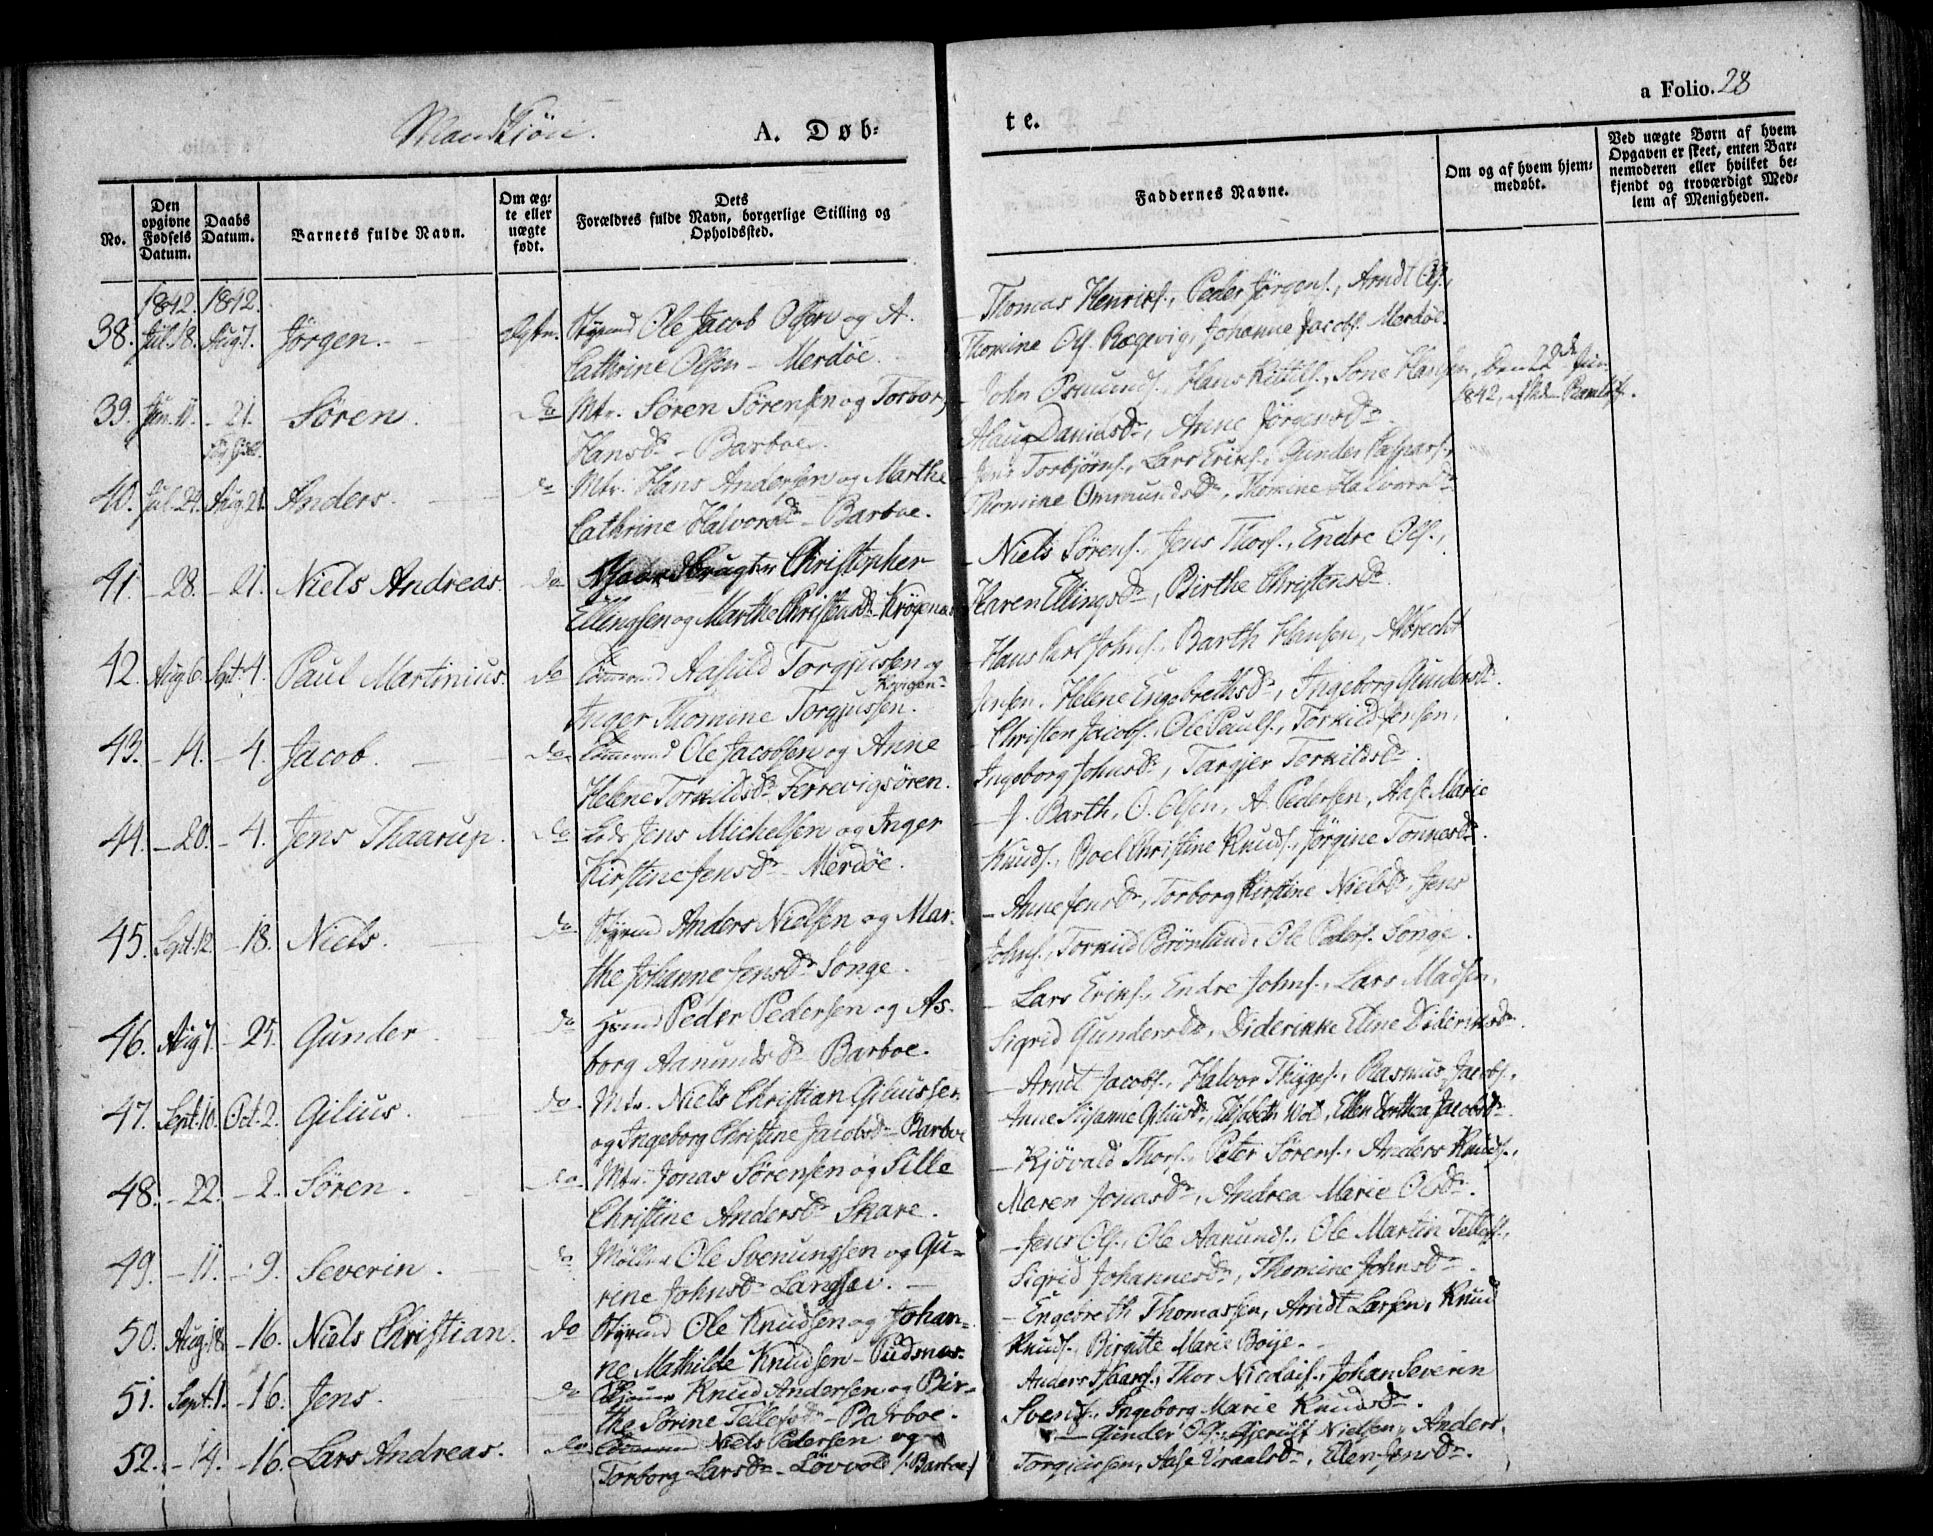 a Folio. 28
Mandkjön. A. Døb- te.
No.
Den opgivne Fødsels Datum.
Daabs Datum.
Barnets fulde Navn.
Om ægte eller uægte født.
Dets Forældres fulde Navn, borgerlige Stilling og Opholdssted.
Faddernes Navne.
Om og af hvem hjemmedøbt.
Ved uægte Børn af hvem Opgaven er skeet, enten Barnemoderen eller hvilket bekjendt og troværdigt Medlem af Menigheden.
1842. 1842.
38. Jul. 18. Aug 7. Jørgen. Ægte. Styrmd Ole Jacob Olsen og A.
Cathrine Olsen - Merdøe.
Thomas Henriks., Peder Jørgens., Arndt Ols.,
Thomine Ols. Rægevig, Johanne Jacobs. Merdøe.
39. Jun. 11. - 21. Søren. do Mtr. Søren Sørensen og Torbor
Hansdr - Barboe.
John Osmunds., Hans Kittils., Hansen, Den 22de Jun.
Alaug Danielsdr, Anne Jørgensdr 1842, af
40. Jul. 24. Aug. 21. Anders. do Mtr. Hans Andersen og Marthe
Cathrine Halvorsdr - Barboe.
Jens Torbjørns., Lars Eriks., Gunder Caspars.,
Thomine Ommundsdr, Thomine Halvorsdr
41. - 28. - 21. Niels Andreas. do Christopher
Ellingsen og Marthe Christensdr Krøgenæs
Niels Sørens., Jens Thors., Endre Ols.,
Karen Ellingsdr, Birthe Christensdr.
42. Aug 6. Sept. 4. Paul Martinius. do Aasuld Torgjussen og
Inger Thomine Torgjussen.
Hans Carl Johns., Barth Hansen, Albrecht
Jensen, Helene Engebrethsdr, Ingeborg Gundersdr.
43. - 14. - 4. Jacob. do Ole Jacobsen og Anne
Helene Torkildsdr Ferrevigsören.
Christen Jacobs., Ole Pauls., Torkild Jensen,
Ingeborg Johnsdr, Targjer Torkildsdr.
44. - 20. - 4. Jens Thaarup. do Jens Michelsen og Inger
Kirstine Jensdr Merdøe.
J. Barth, O. Olsen, A. Pedersen, Aase Marie
Knuds., Boel Christine Knuds., Jørgine Tønnesdr.
45. Sept. 12. - 18. Niels. do Styrmd Anders Nielsen og Mar-
the Johanne Jensdr Songe.
- Anne Jensdr, Torborg Kirstine Nielsdr, Jens
Johns., Torkild Brönlund, Ole Peders. Songe.
46. Aug 7. - 25. Gunder do Huusmd Peder Pedersen og As-
borg Aanundsdr Barboe.
- Lars Eriks., Endre Johns., Lars Madsen,
Sigrid Gundersdr, Diderikke Eline Dideriksdr.
47. Sept. 10. Oct. 2. Gilius. do. Mtr. Niels Christian Giliussen
og Ingeborg Christine Jacobsdr - Barboe
- Arndt Jacobs., Halvor Thygges., Rasmus Jacobs.,
Anne Susanne Giliusdr, Elisabeth Wold, Ellen Dorthea Jacobsdr
48. - 22. - 2. Søren. do. Mtr. Jonas Sørensen og Sille
Christine Andersdr Skare.
- Kjövald Thors., Peter Sörens., Anders Knuds.,
Maren Jonasdr, Andrea Marie Olsdr.
49. - 11. - 9. Severin. do Møller Ole Svenungsen og Gu-
rine Johnsdr Langsæv.
- Jens Ols., Ole Aanunds., Ole Martin Tellefs.,
Sigrid Johannesdr, Thomine Johnsdr.
50. Aug. 18. - 16. Niels Christian. do Styrmd Ole Knudsen og Johan-
ne Mathilde Knudsen - Pudsnæs.
- Engebreth Thomassen, Arndt Larsen, Knud
Knuds., Birgitte Marie Boije.
51. Sept. 1. - 16. Jens. do Knud Andersen og Bir-
the Sörine Tellefsdr - Barboe.
Anders Thors., Thor Nicolais., Johan Severin
Svends., Ingeborg Marie Knudsdr.
52. - 14. - 16. Lars Andreas. do Niels Pedersen og
Torborg Larsdr - Løvvold /: Barboe /
- Gunder Ols., Nielsen, Anders
Torgiussen, Aase Vraalsdr, Ellen Jensdr.